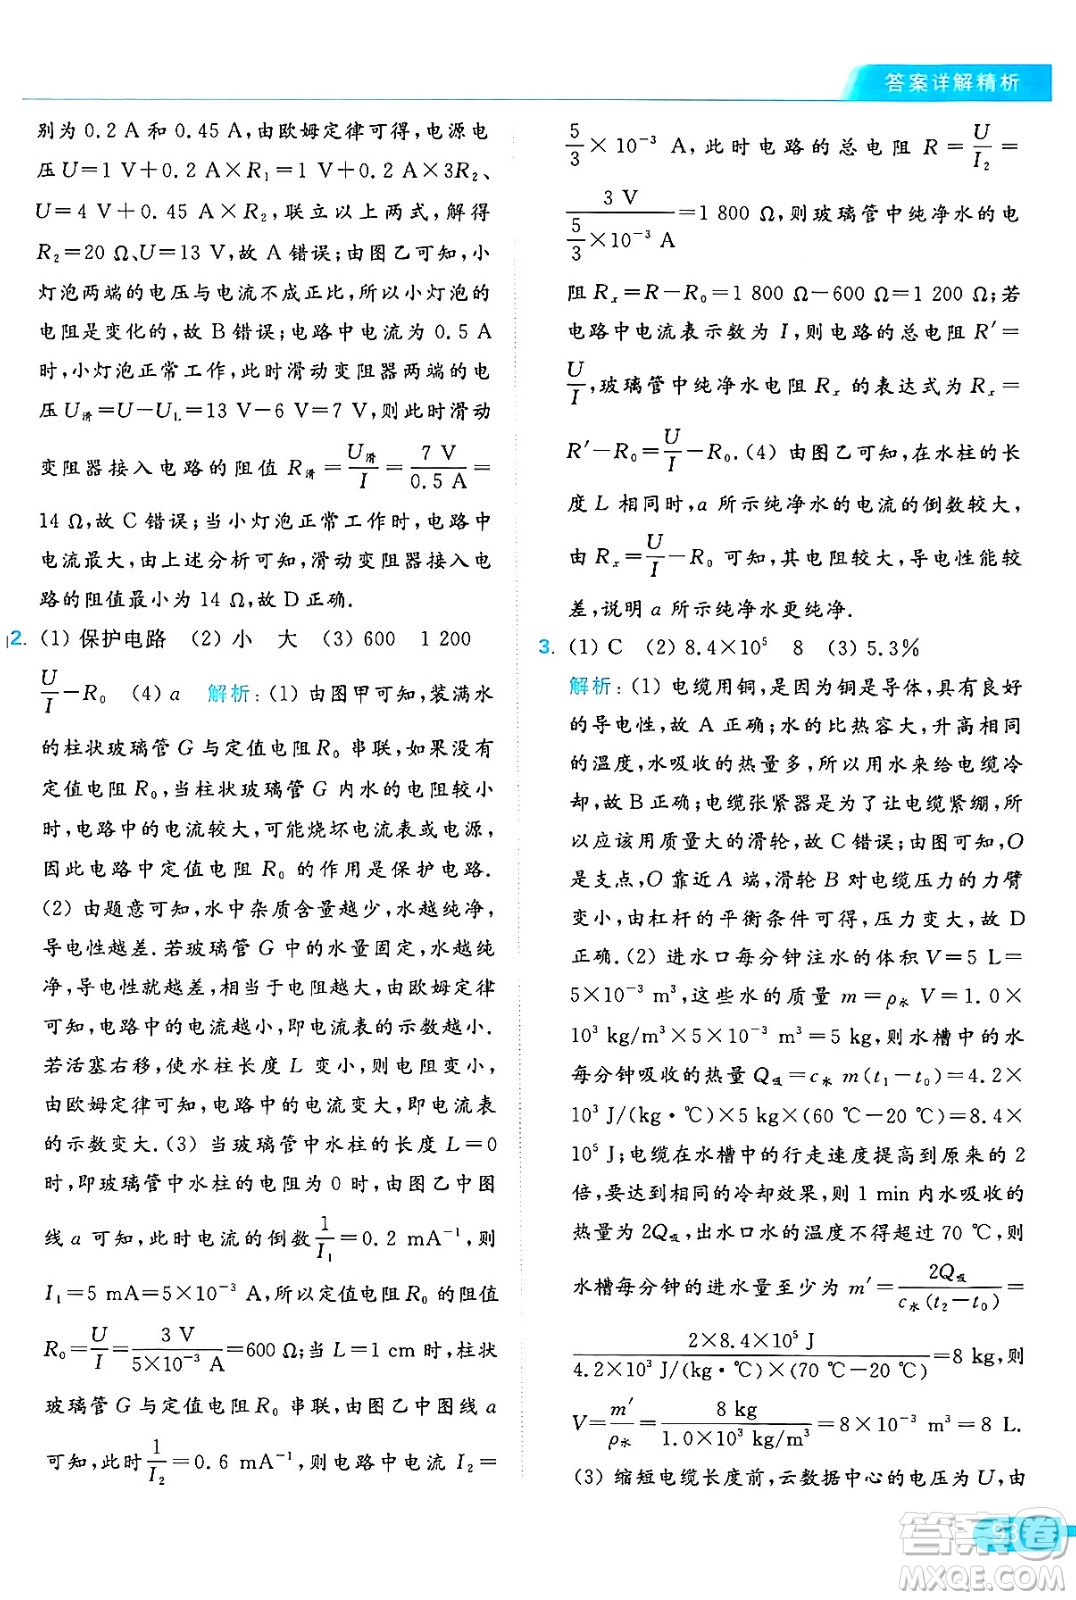 答案详解精析
别为 0.2 A 和 0.45 A,由欧姆定律可得,电源电
压 U=1 V+0.2 A×R₁=1 V+0.2 A×3R₂、
U=4 V+0.45 A×R₂,联立以上两式,解得
R₂=20 Ω、U=13 V,故 A 错误;由图乙可知,小
灯泡两端的电压与电流不成正比,所以小灯泡的
电阻是变化的,故 B 错误;电路中电流为 0.5 A
时,小灯泡正常工作,此时滑动变阻器两端的电
压 U滑=U-U_L=13 V-6 V=7 V,则此时滑动
变阻器接入电路的阻值 R滑=U滑/I=7 V/0.5 A=
14 Ω,故 C 错误;当小灯泡正常工作时,电路中
电流最大,由上述分析可知,滑动变阻器接入电
路的阻值最小为 14 Ω,故 D 正确.
2. (1) 保护电路 (2) 小 大 (3) 600 1 200
U/I-R₀ (4) a 解析:(1) 由图甲可知,装满水
的柱状玻璃管 G 与定值电阻 R₀ 串联,如果没有
定值电阻 R₀,当柱状玻璃管 G 内水的电阻较小
时,电路中的电流较大,可能烧坏电流表或电源,
因此电路中定值电阻 R₀ 的作用是保护电路.
(2) 由题意可知,水中杂质含量越少,水越纯净,
导电性越差.若玻璃管 G 中的水量固定,水越纯
净,导电性就越差,相当于电阻越大,由欧姆定律
可知,电路中的电流越小,即电流表的示数越小.
若活塞右移,使水柱长度 L 变小,则电阻变小,
由欧姆定律可知,电路中的电流变大,即电流表
的示数变大.(3) 当玻璃管中水柱的长度 L=0
时,即玻璃管中水柱的电阻为 0 时,由图乙中图
线 a 可知,此时电流的倒数 1/I₁=0.2 mA⁻¹,则
I₁=5 mA=5×10⁻³ A,所以定值电阻 R₀ 的阻值
R₀=U/I=3 V/5×10⁻³ A=600 Ω;当 L=1 cm 时,柱状
玻璃管 G 与定值电阻 R₀ 串联,由图乙中图线 a
可知,此时 1/I₂=0.6 mA⁻¹,则电路中电流 I₂=
5/3×10⁻³ A,此时电路的总电阻 R=U/I₂=
3 V/(5/3×10⁻³ A)=1 800 Ω,则玻璃管中纯净水的电
阻 Rₓ=R-R₀=1 800 Ω-600 Ω=1 200 Ω;若
电路中电流表示数为 I,则电路的总电阻 R′=
U/I,玻璃管中纯净水电阻 Rₓ 的表达式为 Rₓ=
R′-R₀=U/I-R₀.(4) 由图乙可知,在水柱的长
度 L 相同时,a 所示纯净水的电流的倒数较大,
由 Rₓ=U/I-R₀ 可知,其电阻较大,导电性能较
差,说明 a 所示纯净水更纯净.
3. (1) C (2) 8.4×10⁵ 8 (3) 5.3%
解析:(1) 电缆用铜,是因为铜是导体,具有良好
的导电性,故 A 正确;水的比热容大,升高相同
的温度,水吸收的热量多,所以用水来给电缆冷
却,故 B 正确;电缆张紧器是为了让电缆紧绷,所
以应该用质量大的滑轮,故 C 错误;由图知,O
是支点,O 靠近 A 端,滑轮 B 对电缆压力的力臂
变小,由杠杆的平衡条件可得,压力变大,故 D
正确.(2) 进水口每分钟注水的体积 V=5 L=
5×10⁻³ m³,这些水的质量 m=ρ水V=1.0×
10³ kg/m³×5×10⁻³ m³=5 kg,则水槽中的水
每分钟吸收的热量 Q吸=c水m(t₁-t₀)=4.2×
10³ J/(kg·℃)×5 kg×(60 ℃-20 ℃)=8.4×
10⁵ J;电缆在水槽中的行走速度提高到原来的 2
倍,要达到相同的冷却效果,则 1 min 内水吸收的
热量为 2Q吸,出水口水的温度不得超过 70 ℃,则
水槽每分钟的进水量至少为 m′=2Q吸/c水(t₂-t₀)=
2×8.4×10⁵ J/4.2×10³ J/(kg·℃)×(70 ℃-20 ℃)=8 kg,则
V=m′/ρ水=8 kg/1.0×10³ kg/m³=8×10⁻³ m³=8 L.
(3) 缩短电缆长度前,云数据中心的电压为 U,由
93
答案圈
MXQE.COM